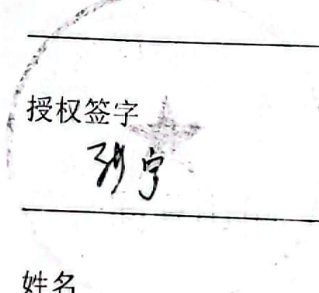 授权签字
孙宁
姓名